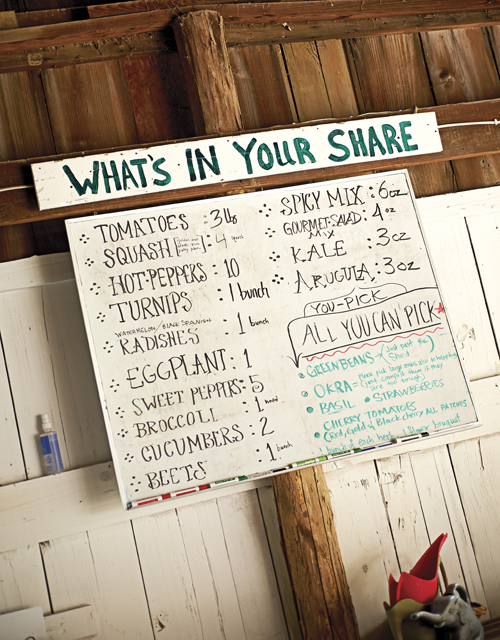 WHAT'S IN YOUR SHARE
TOMATOES : 3 lbs
SQUASH 4
HOT-PEPPERS : 10
TURNIPS : 1 bunch
WATERMELON/BLACK SPANISH
RADISHES : 1 bunch
EGGPLANT : 1
SWEET PEPPERS : 5
BROCCOLI : 1 head
CUCUMBERS : 2
BEETS : 1 bunch
SPICY MIX : 6oz
GOURMET-SALAD MIX : 4oz
KALE : 3oz
ARUGULA : 3oz
YOU-PICK
ALL YOU CAN PICK
GREEN BEANS → (Just past the
shed
OKRA =
BASIL STRAWBERRIES
CHERRY TOMATOES
(Red, Gold & Black cherry ALL PATCHES
1 bunch of each herb 1 flower bouquet